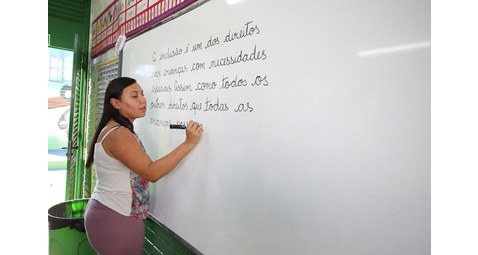 A inclusão é um dos direitos
das crianças com necessidades
assim como todos os
outros direitos que todas as
crianças